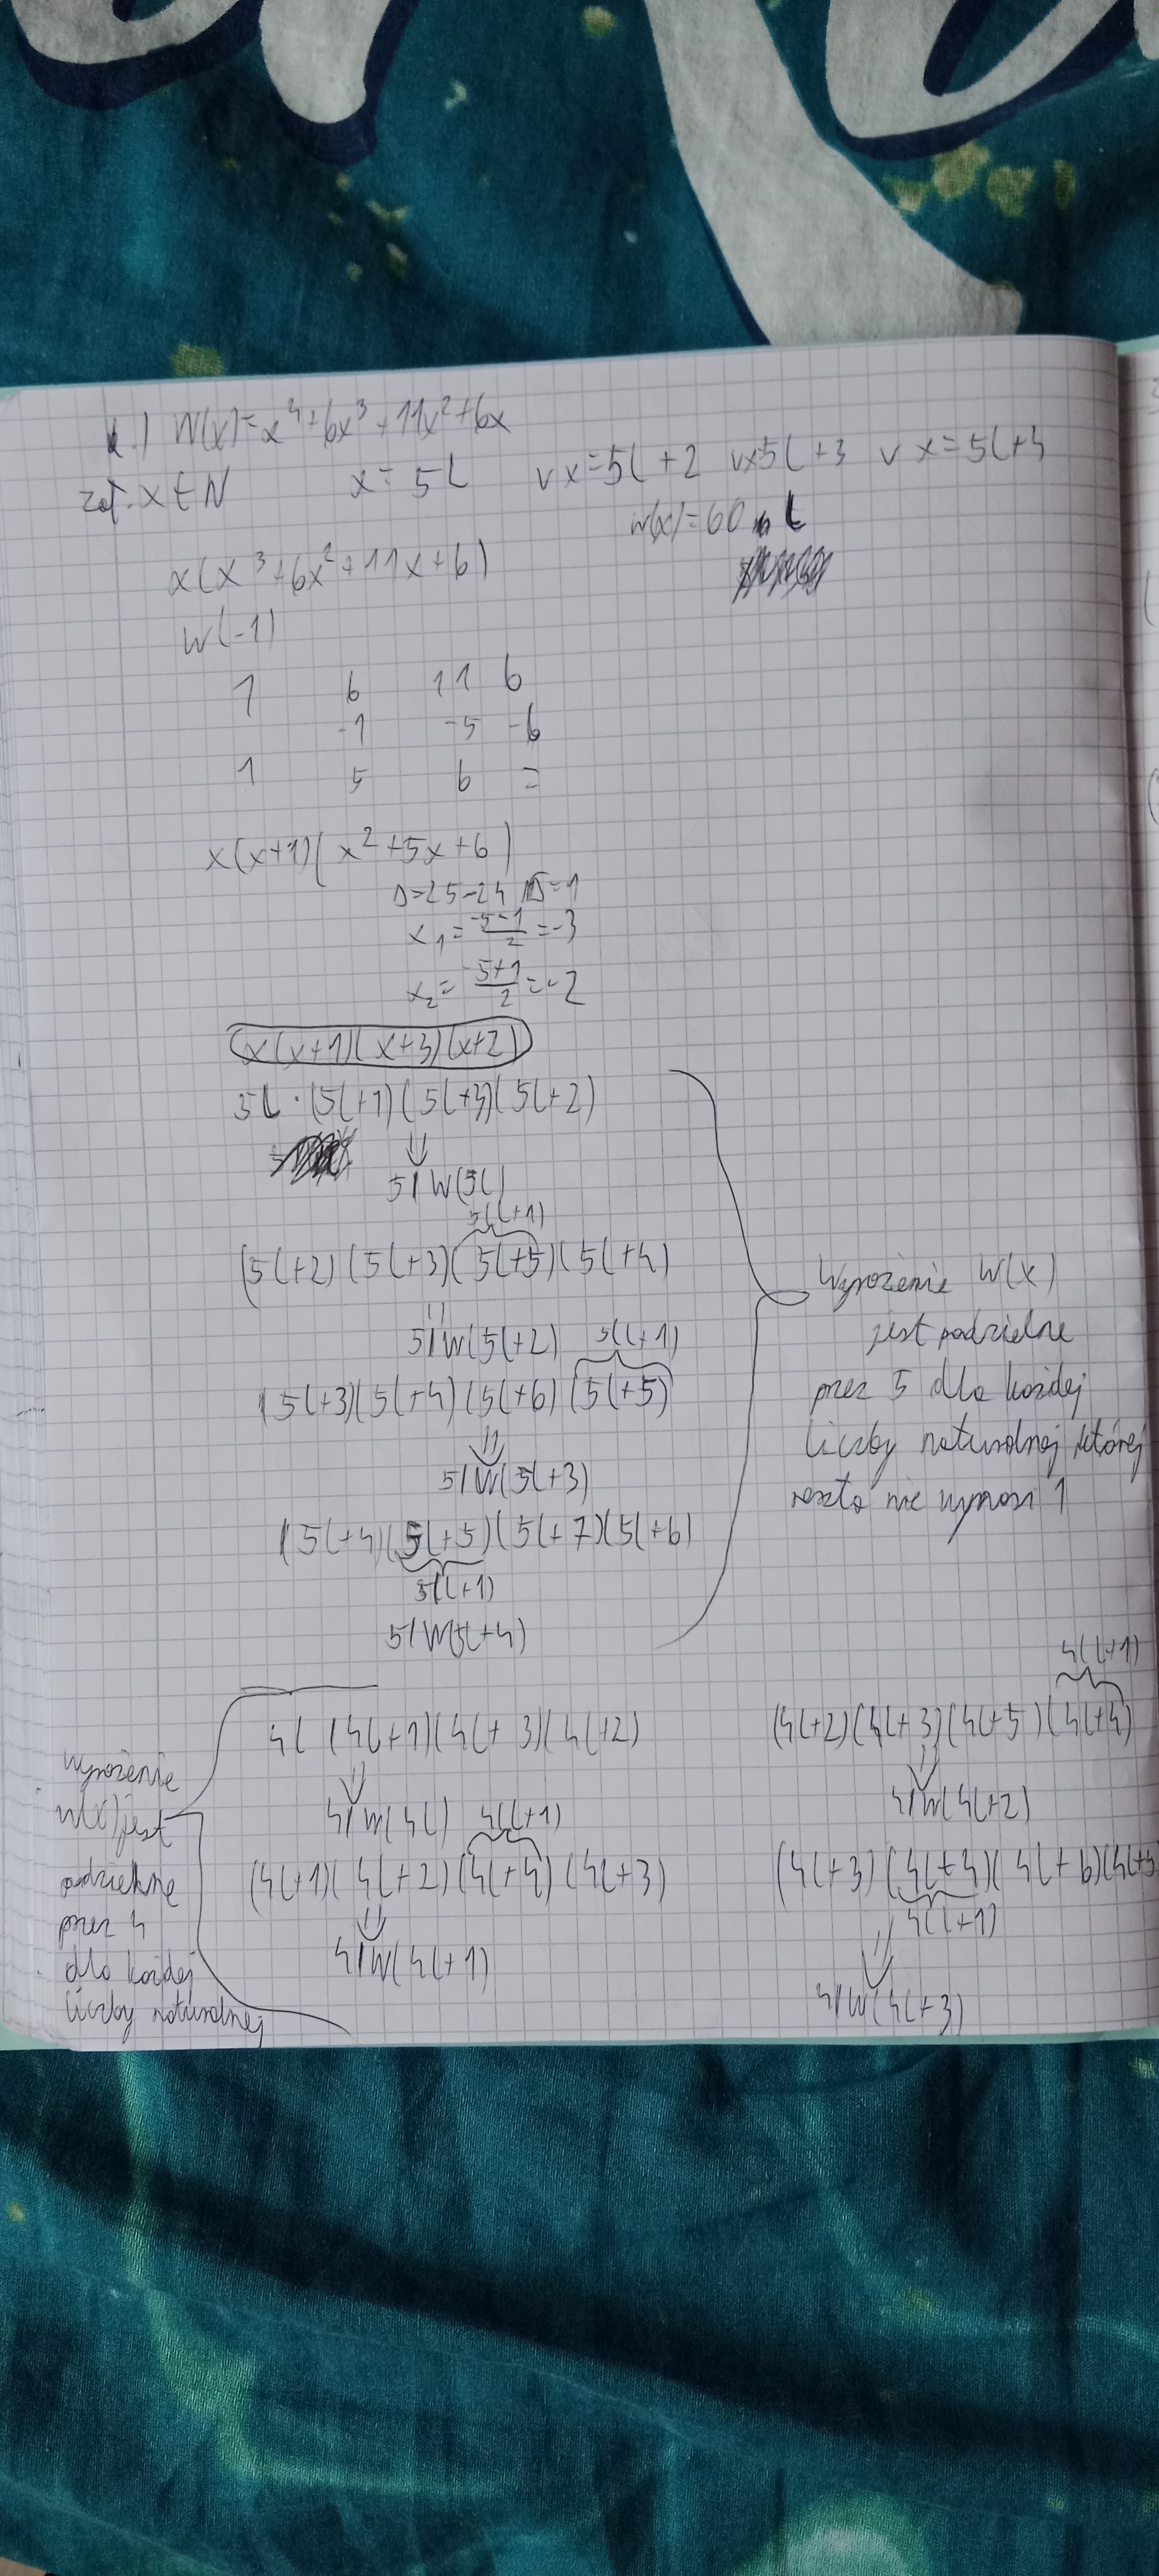 2.) W(x)=x⁴+6x³+11x²+6x
zał. x∈N x=5l v x=5l+2 v x=5l+3 v x=5l+4
w(x)=60 l
x(x³+6x²+11x+6)
W(-1)
1 6 11 6
-1 -5 -6
1 5 6 =
x(x+1)(x²+5x+6)
Δ=25-24 √Δ=1
x₁=(-5-1)/2=-3
x₂=(-5+1)/2=-2
x(x+1)(x+3)(x+2)
5l·(5l+1)(5l+3)(5l+2)
⇓
5|W(5l)
5(l+1)
(5l+2)(5l+3)(5l+5)(5l+4)
5|W(5l+2) 5(l+1)
(5l+3)(5l+4)(5l+6)(5l+5)
⇓
5|W(5l+3)
(5l+4)(5l+5)(5l+7)(5l+6)
5(l+1)
5|W(5l+4)
Wyrażenie W(x)
jest podzielne
przez 5 dla każdej
liczby naturalnej której
reszta nie wynosi 1
4l(4l+1)(4l+3)(4l+2)
⇓
4|W(4l) 4(l+1)
(4l+1)(4l+2)(4l+4)(4l+3)
⇓
4|W(4l+1)
4(l+1)
(4l+2)(4l+3)(4l+5)(4l+4)
⇓
4|W(4l+2)
(4l+3)(4l+4)(4l+6)(4l+5
4(l+1)
⇓
4|W(4l+3)
wyrażenie
w(x) jest
podzielne
przez 4
dla każdej
liczby naturalnej